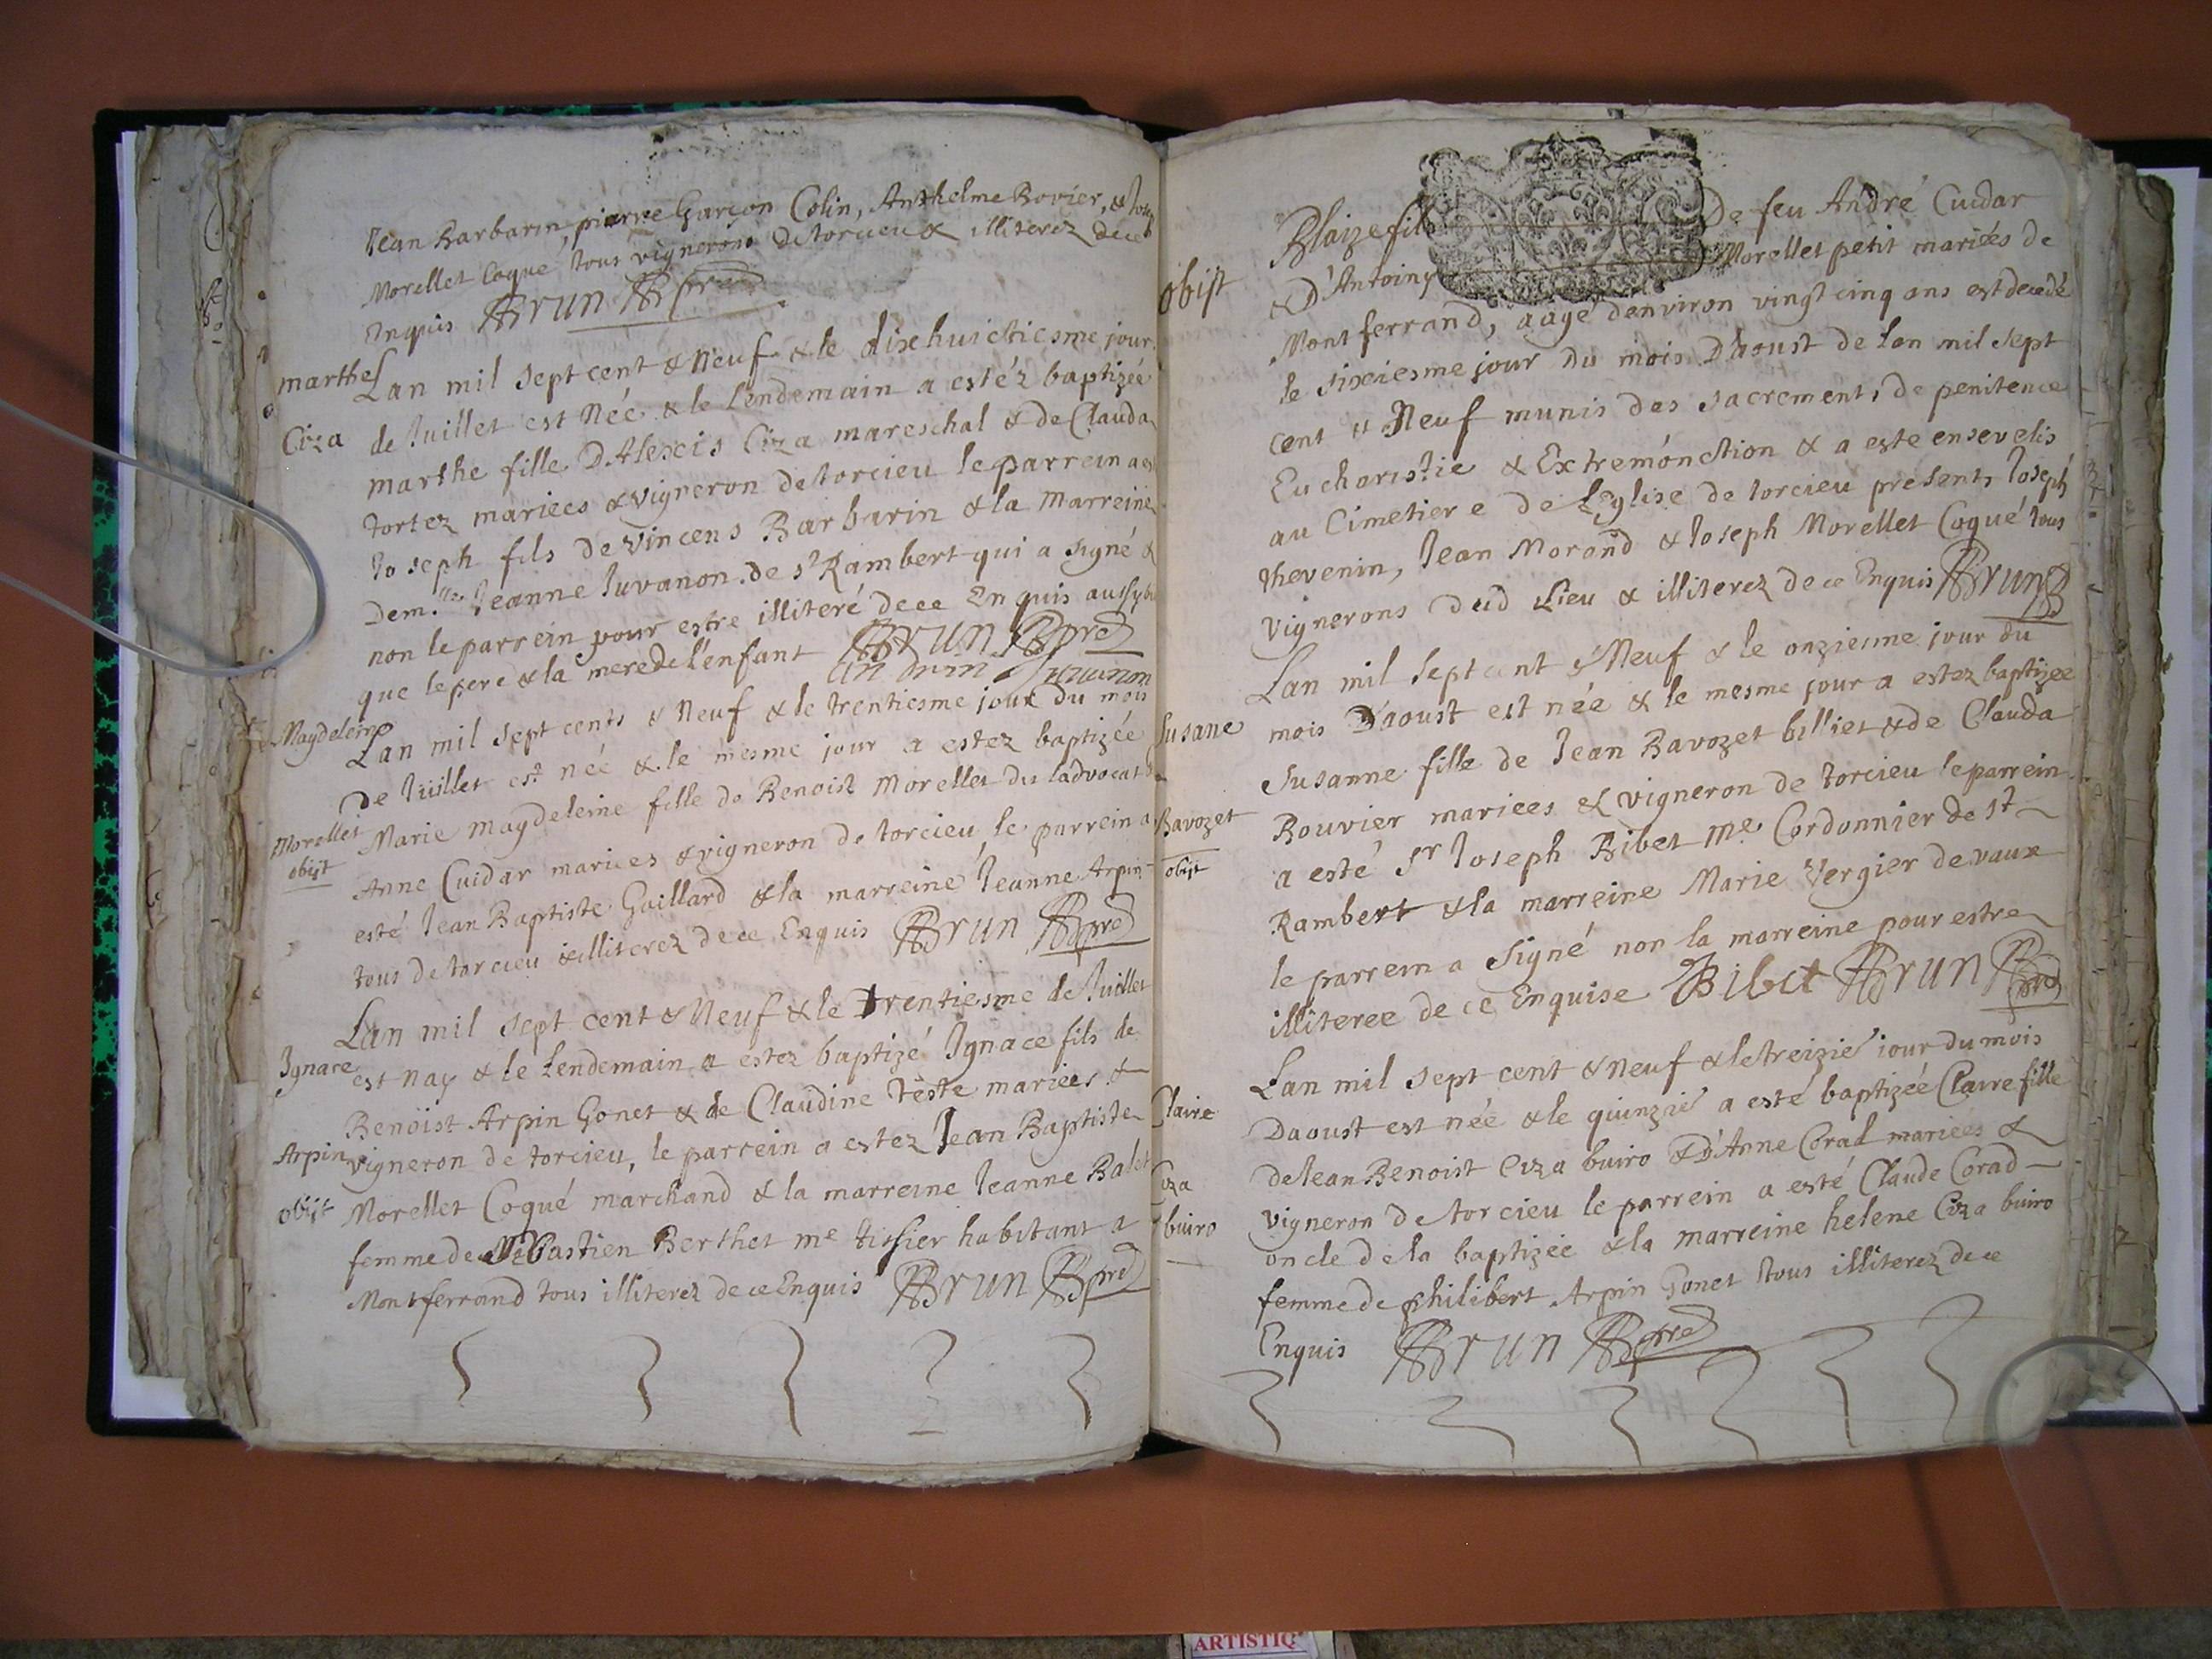 Jean Barbarin, pierre Garçon Colin, Anthelme Bovier, & Joseph
Morellet Coqué tous vignerons de torcieu & illiterez de ce
Enquis ABrun ABpre
marthe
Lan mil sept cent & Neuf & le dixhuictiesme jour
Ciza
de Juillet est Née & le Lendemain a estéz baptizée
marthe fille D'Alexis Ciza mareschal & de Clauda
tortez mariees & vigneron de torcieu le parrein a esté
Joseph fils de vincens Barbarin & la Marreine
Dem.lle Jeanne Juvanon de st Rambert qui a signé &
non le parrein pour estre illiteré de ce Enquis aussy bien
que le pere & la mere de l'enfant ABrun ABpre
Juvanon
Magdeleine
Lan mil sept cents & Neuf & le trentiesme jour du mois
de Juillet est née & le mesme jour a estez baptizée
Morellet
Marie magdeleine fille de Benoist Morellet du ladvocat &
obijt
Anne Cuidar mariees & vigneron de torcieu le parrein a
esté Jean Baptiste Gaillard & la marreine Jeanne Arpin
tous de torcieu & illiterez de ce Enquis ABrun ABpre
Lan mil sept cent & Neuf & le trentiesme de Juillet
Ignace
est nay & le Lendemain a estez baptizé Ignace fils de
Benoist Arpin Gonet & de Claudine teste mariees &
Arpin
vigneron de torcieu, le parrein a estez Jean Baptiste
obijt
Morellet Coqué marchand & la marreine Jeanne Balet
femme de Sébastien Berthet me tissier habitant a
Montferrand tous illiterez de ce Enquis ABrun ABpre
Blaize fils De feu André Cuidar
obijt
& D'Antoiny Morellet petit mariées de
Montferrand, aagé denviron vingt cinq ans est decedé
le sixiesme jour du mois D'aoust de lan mil sept
cent & Neuf munis des sacrements de penitence
Eucharistie & Extremónction & a esté ensevelis
au Cimetiere de L'Eglise de torcieu presents Joseph
thevenin, Jean Morand & Joseph Morellet Coqué tous
vignerons dud Lieu & illiterez de ce Enquis ABrun
Lan mil sept cent & Neuf & le onziesme jour du
Susane
mois D'aoust est née & le mesme jour a estez baptizée
Susanne fille de Jean Bavozet billiet & de Clauda
Bavozet
Bouvier mariees & vigneron de torcieu le parrein
obijt
a esté Sr Joseph Bibet Me Cordonnier de st
Rambert & la marreine Marie Vergier de vaux
le parrein a signé non la marreine pour estre
illiteree de ce Enquise Bibet ABrun ABpre
Lan mil sept cent & Neuf & le treizie jour du mois
Claire
Daoust est née & le quinzie a esté baptizée Claire fille
de Jean Benoist Ciza buiro & D'Anne Corad mariées &
Ciza
vigneron de torcieu le parrein a esté Claude Corad
buiro
oncle de la baptizée & la marreine helene Ciza buiro
femme de philibert Arpin Gonet tous illiterez de ce
Enquis ABrun ABpre
ARTISTIQ